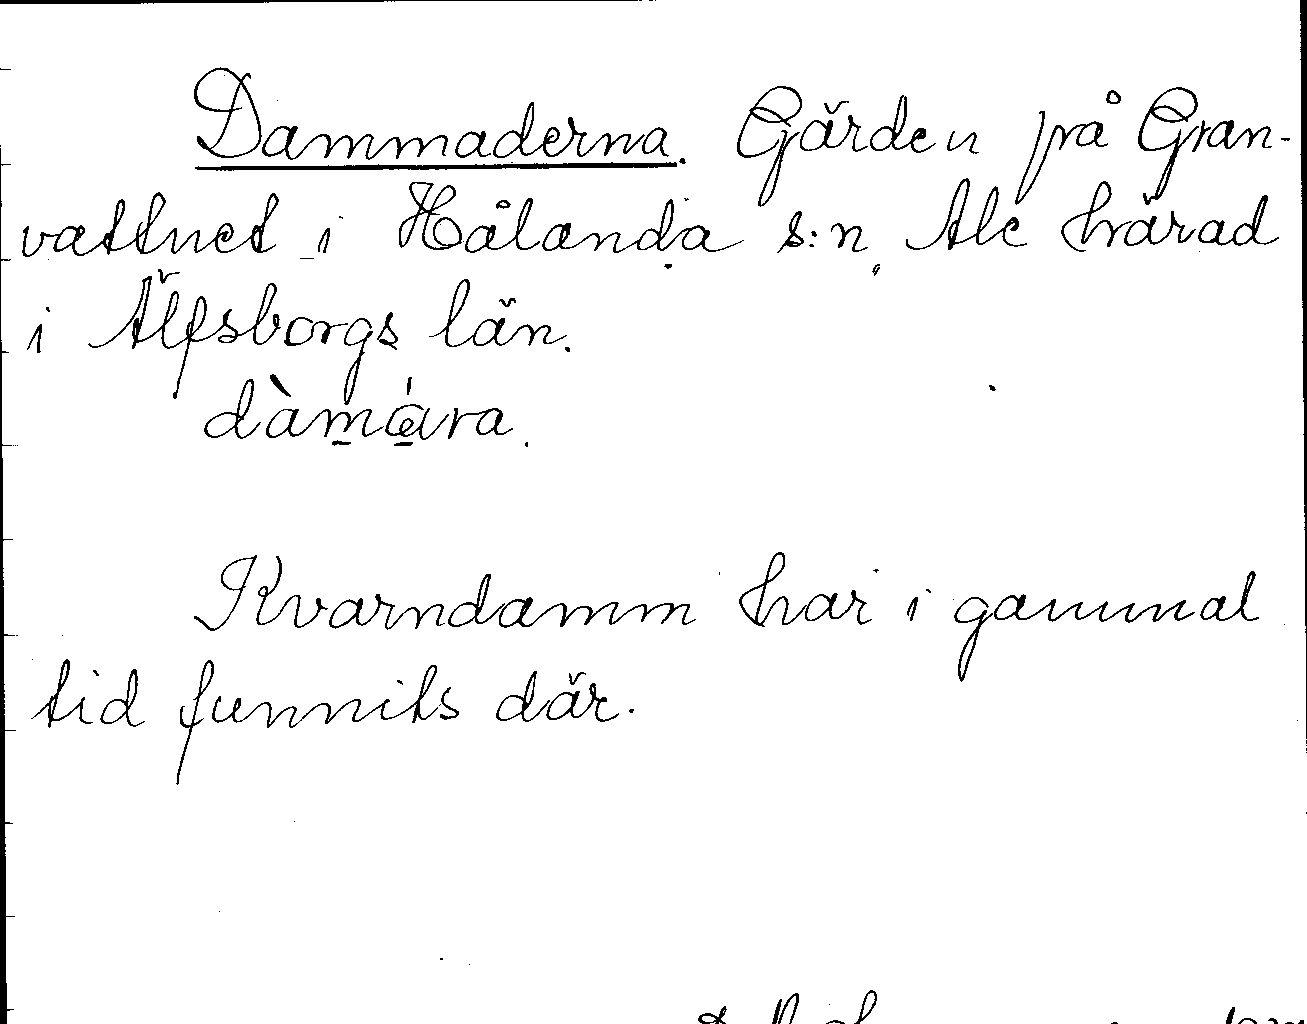 Dammaderna. Gärden på Gran-
vattnet i Hålanda s:n, Ale härad
i Älfsborgs län.
Kvarndamm har i gammal
tid funnits där.